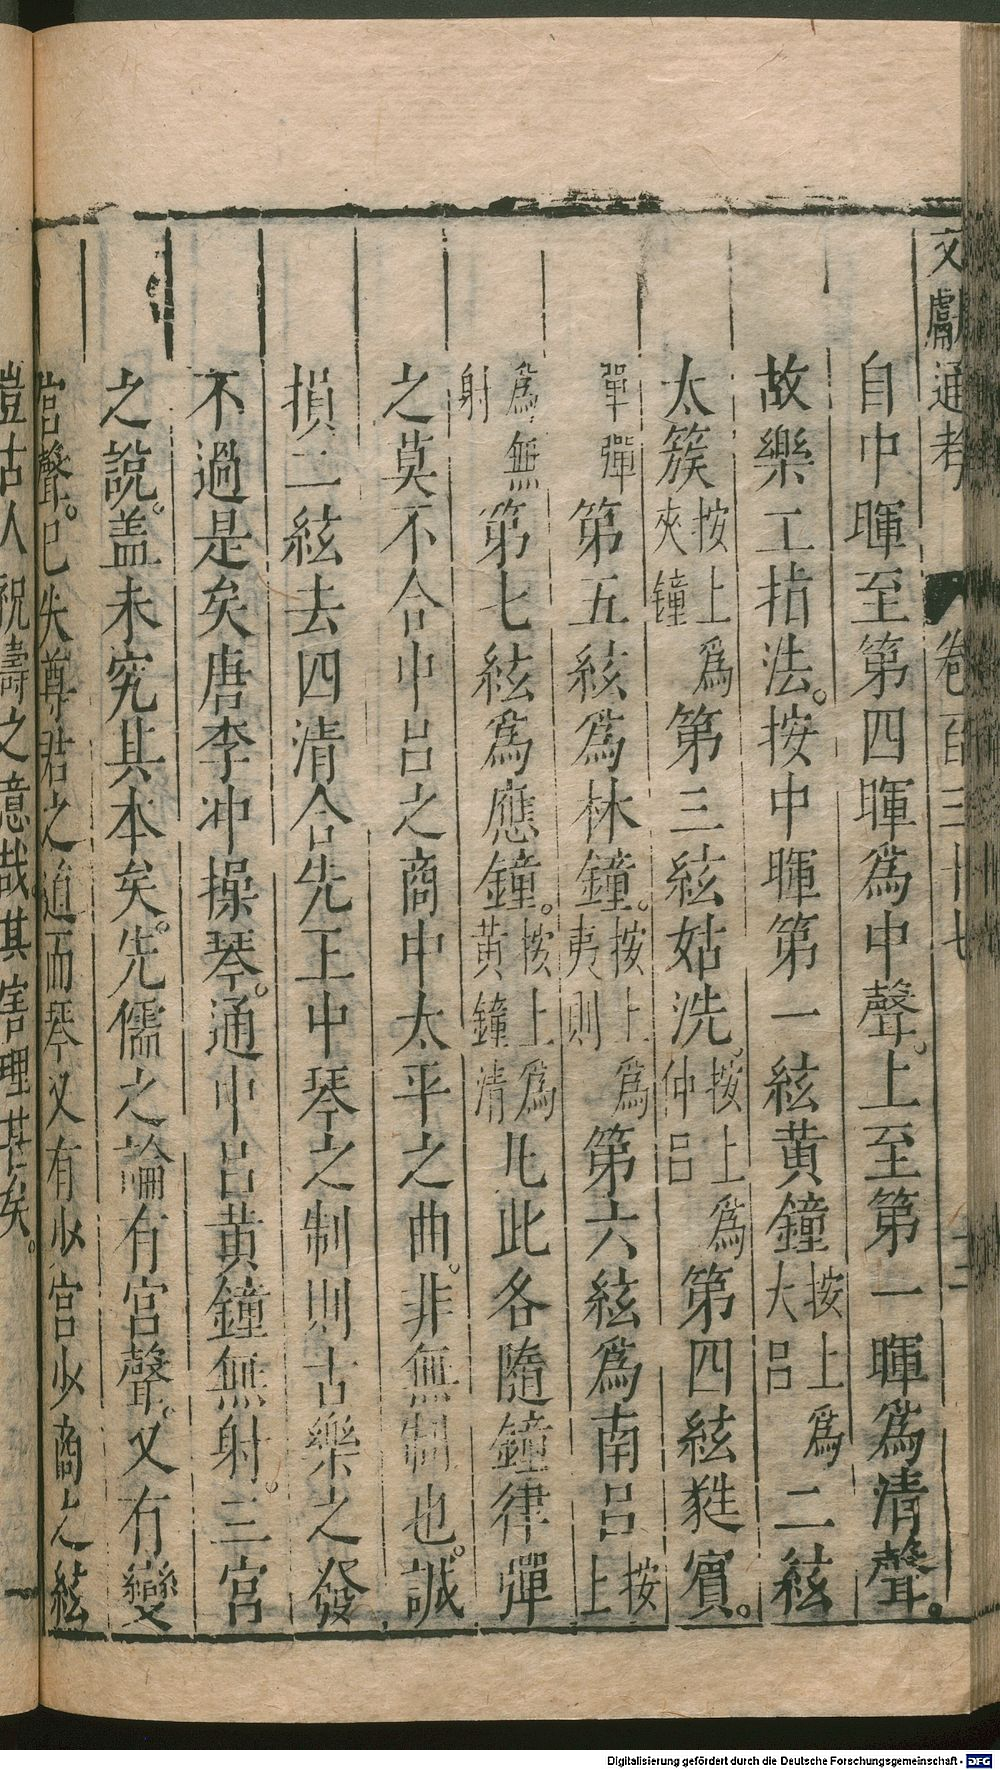 文獻通考 卷百三十七
自中暉至第四暉爲中聲。上至第一暉爲清聲。
故樂工指法。按中暉第一絃黄鐘按上爲大呂二絃
太簇按上爲夾鐘第三絃姑洗。按上爲仲呂第四絃蕤賓。
單彈第五絃爲林鐘。按上爲夷則第六絃爲南呂按上
爲無射第七絃爲應鐘。按上爲黄鐘清凡此各隨鐘律彈
之莫不合中呂之商中太平之曲。非無制也。誠
損二絃去四清合先王中琴之制則古樂之發
不過是矣唐李冲操琴。通中呂黄鐘無射。三宮
之說。盖未究其本矣。先儒之論有宫聲。又有變
宫聲。已失尊君之道而琴又有少宫少商之絃
豈古人祝壽之意哉其害理甚矣。
Digitalisierung gefördert durch die Deutsche Forschungsgemeinschaft - DFG